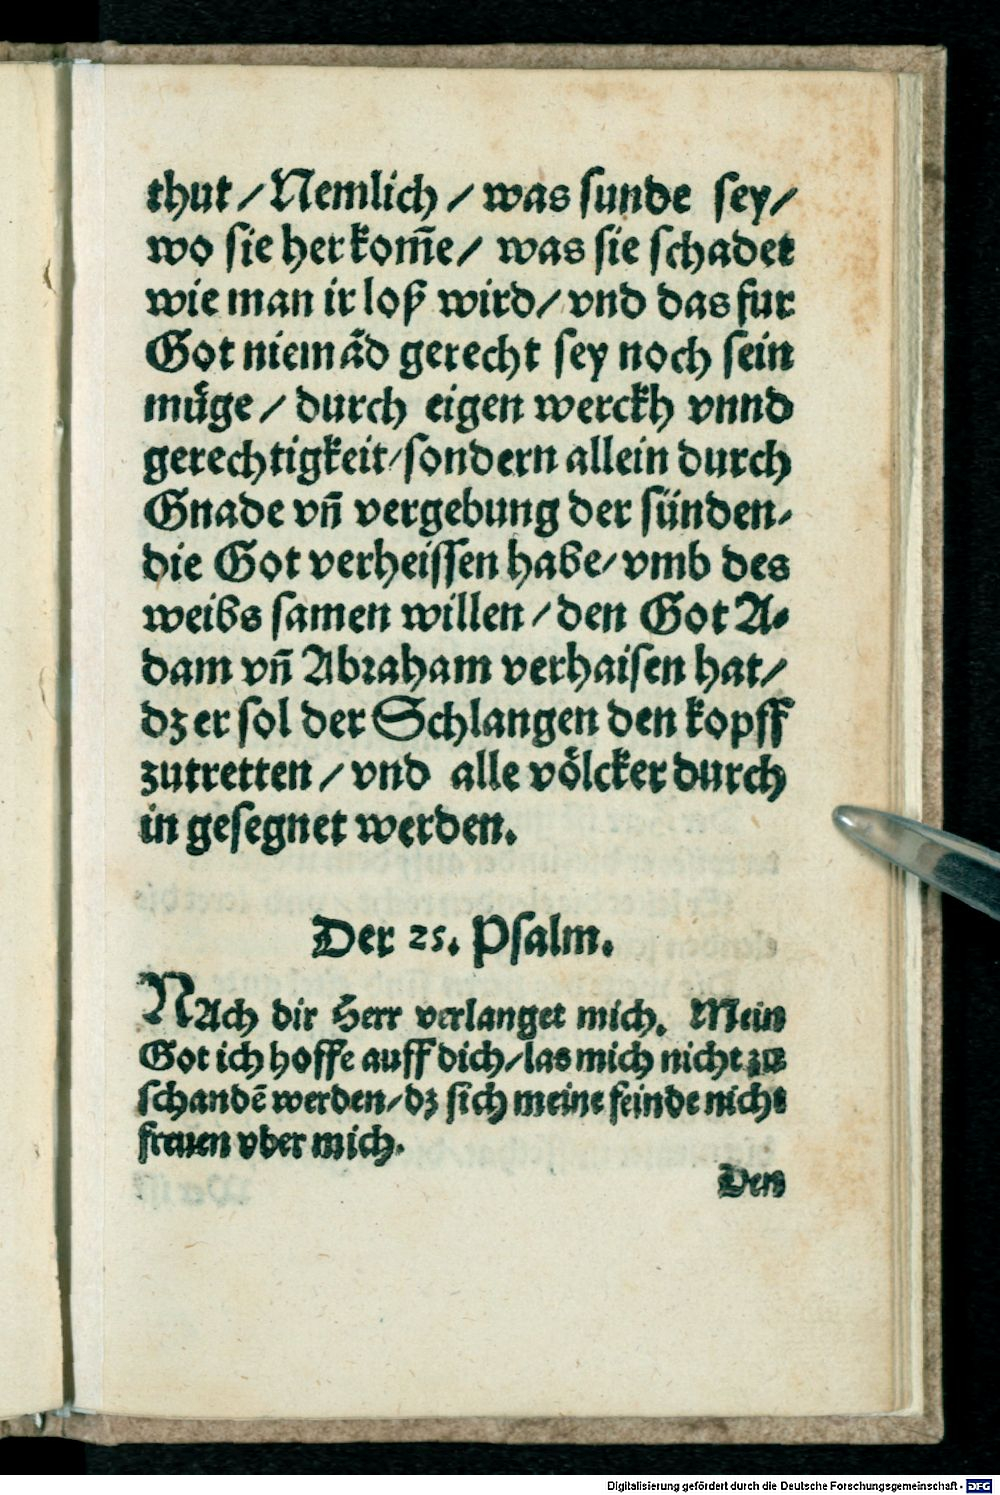 thut / Nemlich / was sunde sey/
wo sie her kom̃e/ was sie schadet
wie man ir loß wird/ vnd das fur
Got niemãd gerecht sey noch sein
muͤge / durch eigen werckh vnnd
gerechtigkeit/ sondern allein durch
Gnade vñ vergebung der sünden/
die Got verheissen habe/ vmb des
weibs samen willen / den Got A⸗
dam vñ Abraham verhaisen hat/
dz er sol der Schlangen den kopff
zutretten / vnd alle voͤlcker durch
in gesegnet werden.
Der 25. Psalm.
NAch dir Herr verlanget mich. Mein
Got ich hoffe auff dich/ las mich nicht zu
schandẽ werden/ dz sich meine feinde nicht
freuen vber mich.
Den
Digitalisierung gefördert durch die Deutsche Forschungsgemeinschaft - DFG